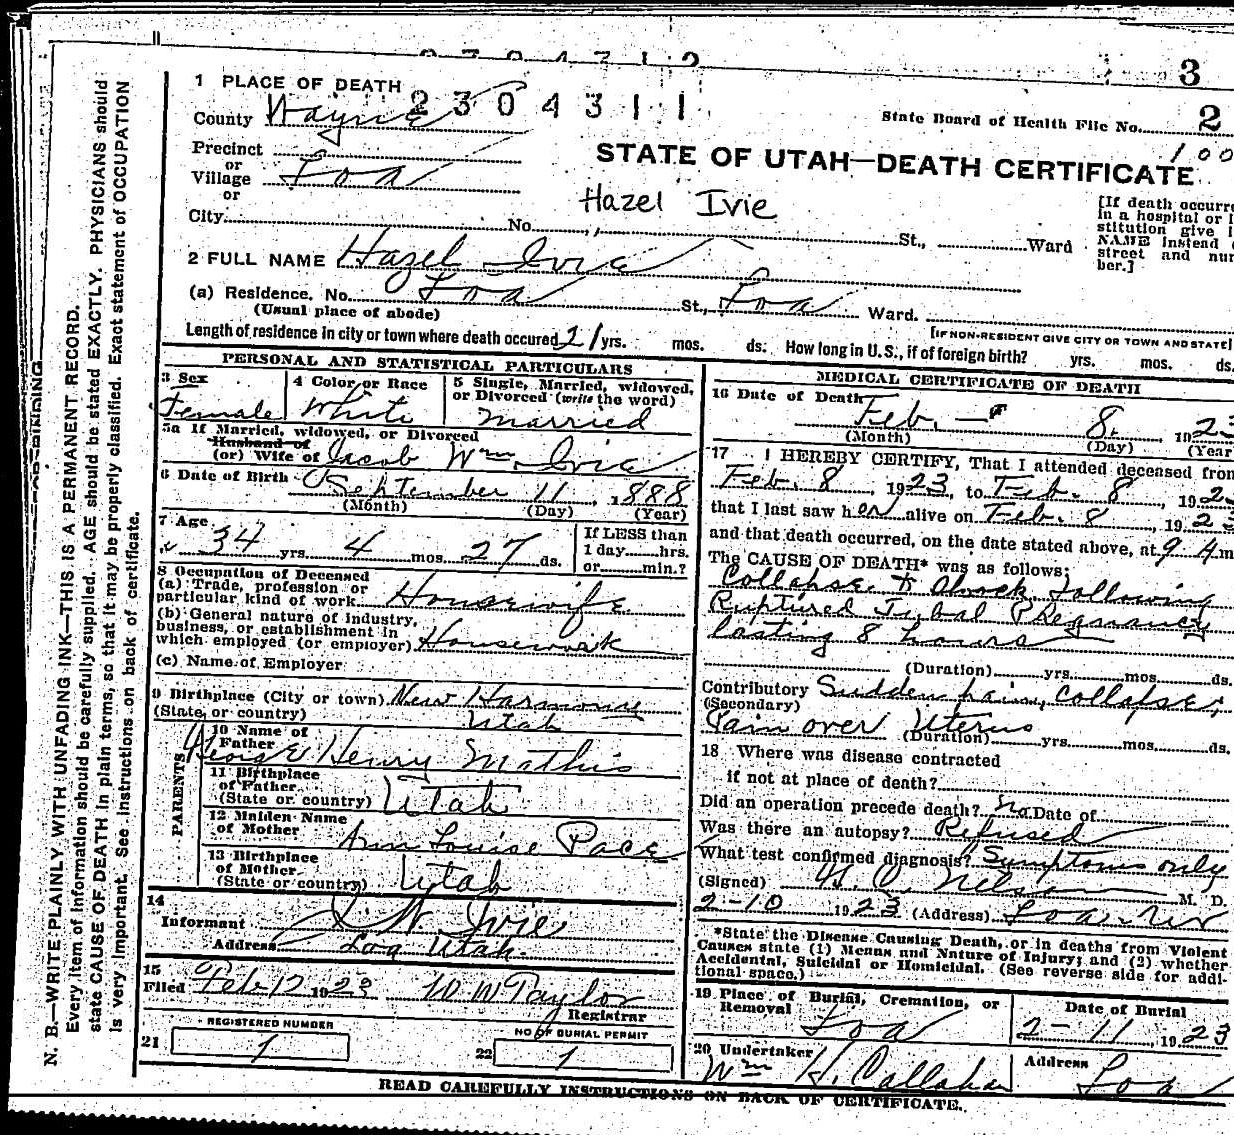 3
1 PLACE OF DEATH
2304311
County Wayne
State Board of Health File No. 2
100
Precinct
or
Village Loa
or
STATE OF UTAH—DEATH CERTIFICATE
Hazel Ivie
City No. St., Ward
[If death occurre
in a hospital or i
stitution give i
NAME instead
street and nur
ber.]
2 FULL NAME Hazel Ivie
(a) Residence. No. Loa St., Loa Ward.
(Usual place of abode)
[IF NON-RESIDENT GIVE CITY OR TOWN AND STATE]
Length of residence in city or town where death occured 21 yrs. mos. ds. How long in U. S., if of foreign birth? yrs. mos. ds.
PERSONAL AND STATISTICAL PARTICULARS
3 Sex
Female
4 Color or Race
White
5 Single, Married, widowed,
or Divorced (write the word)
Married
5a If Married, widowed, or Divorced
Husband of
(or) Wife of Jacob Wm. Ivie
6 Date of Birth September 11, 1888
(Month) (Day) (Year)
7 Age
34 yrs. 4 mos. 27 ds.
If LESS than
1 day hrs.
or min.?
8 Occupation of Deceased
(a) Trade, profession or
particular kind of work Housewife
(b) General nature of industry,
business, or establishment in
which employed (or employer) Housework
(c) Name of Employer
9 Birthplace (City or town) New Harmony
(State or country) Utah
PARENTS
10 Name of
Father George Henry Mathis
11 Birthplace
of Father
(State or country) Utah
12 Maiden Name
of Mother Ann Louise Pace
13 Birthplace
of Mother
(State or country) Utah
14
Informant J. W. Ivie
Address Loa Utah.
15
Filed Feb 12 1923 W W Taylor
Registrar
REGISTERED NUMBER
21 1
NO OF BURIAL PERMIT
22 1
MEDICAL CERTIFICATE OF DEATH
16 Date of Death Feb. 8, 1923
(Month) (Day) (Year
17 I HEREBY CERTIFY, That I attended deceased from
Feb. 8, 1923, to Feb. 8 1923
that I last saw her alive on Feb. 8, 1923
and that death occurred, on the date stated above, at 9 A m
The CAUSE OF DEATH* was as follows:
Collapse & Shock following
Ruptured Tubal Pregnancy
lasting 8 hours
(Duration) yrs. mos. ds.
Contributory Sudden pain, collapse,
(Secondary)
Pain over Uterus
(Duration) yrs. mos. ds.
18 Where was disease contracted
if not at place of death?
Did an operation precede death? No Date of
Was there an autopsy? Refused
What test confirmed diagnosis? Symptoms only
(Signed) Nelson M. D.
2-10 1923 (Address) Loa
*State the Disease Causing Death, or in deaths from Violent
Causes state (1) Means and Nature of Injury; and (2) whether
Accidental, Suicidal or Homicidal. (See reverse side for addi-
tional space.)
19 Place of Burial, Cremation, or
Removal
Loa
Date of Burial
2-11, 1923
20 Undertaker
Wm H. Callahan
Address
Loa
READ CAREFULLY INSTRUCTIONS ON BACK OF CERTIFICATE.
N. B.—WRITE PLAINLY WITH UNFADING INK—THIS IS A PERMANENT RECORD.
Every item of information should be carefully supplied. AGE should be stated EXACTLY. PHYSICIANS should
state CAUSE OF DEATH in plain terms, so that it may be properly classified. Exact statement of OCCUPATION
is very important. See instructions on back of certificate.